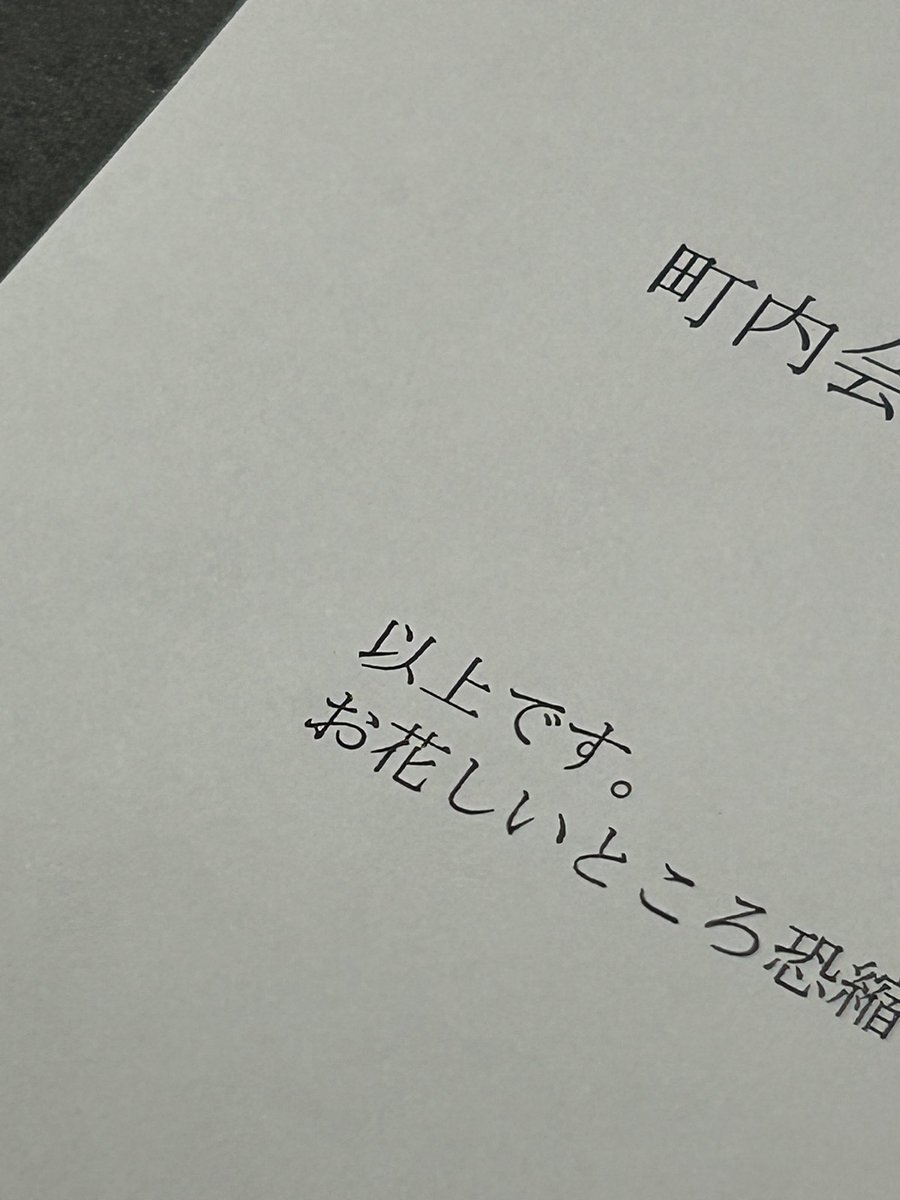 町内会
以上です。
お花しいところ恐縮